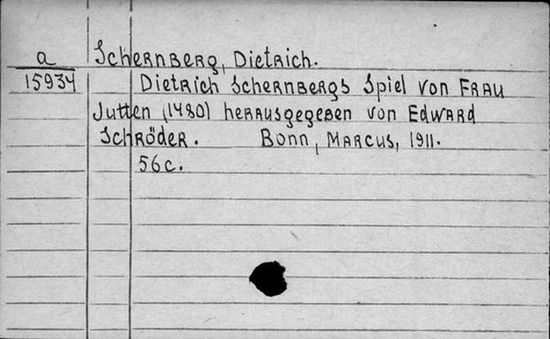 a
15934
Schernberg, Dietrich.
Dietrich Schernbergs Spiel von Frau
Jutten (1480) herausgegeben von Edward
Schröder. Bonn, Marcus, 1911.
56c.